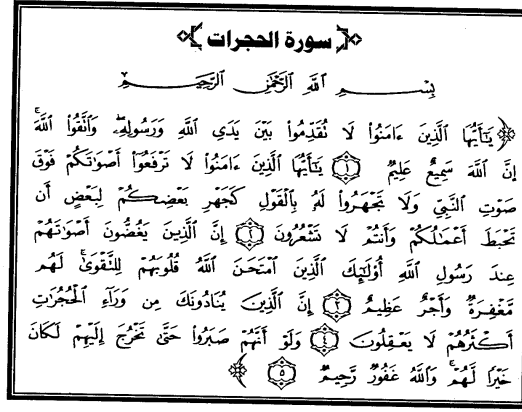 سورة الحجرات
بِسْمِ اللَّهِ الرَّحْمَٰنِ الرَّحِيمِ
﴿يَٰٓأَيُّهَا الَّذِينَ ءَامَنُوا۟ لَا تُقَدِّمُوا۟ بَيْنَ يَدَىِ اللَّهِ وَرَسُولِهِۦ وَاتَّقُوا۟ اللَّهَ ۚ
إِنَّ اللَّهَ سَمِيعٌ عَلِيمٌ ١ يَٰٓأَيُّهَا الَّذِينَ ءَامَنُوا۟ لَا تَرْفَعُوٓا۟ أَصْوَٰتَكُمْ فَوْقَ
صَوْتِ النَّبِىِّ وَلَا تَجْهَرُوا۟ لَهُۥ بِالْقَوْلِ كَجَهْرِ بَعْضِكُمْ لِبَعْضٍ أَن
تَحْبَطَ أَعْمَٰلُكُمْ وَأَنتُمْ لَا تَشْعُرُونَ ٢ إِنَّ الَّذِينَ يَغُضُّونَ أَصْوَٰتَهُمْ
عِندَ رَسُولِ اللَّهِ أُو۟لَٰٓئِكَ الَّذِينَ امْتَحَنَ اللَّهُ قُلُوبَهُمْ لِلتَّقْوَىٰ ۚ لَهُم
مَّغْفِرَةٌ وَأَجْرٌ عَظِيمٌ ٣ إِنَّ الَّذِينَ يُنَادُونَكَ مِن وَرَآءِ الْحُجُرَٰتِ
أَكْثَرُهُمْ لَا يَعْقِلُونَ ٤ وَلَوْ أَنَّهُمْ صَبَرُوا۟ حَتَّىٰ تَخْرُجَ إِلَيْهِمْ لَكَانَ
خَيْرًا لَّهُمْ ۚ وَاللَّهُ غَفُورٌ رَّحِيمٌ ٥﴾